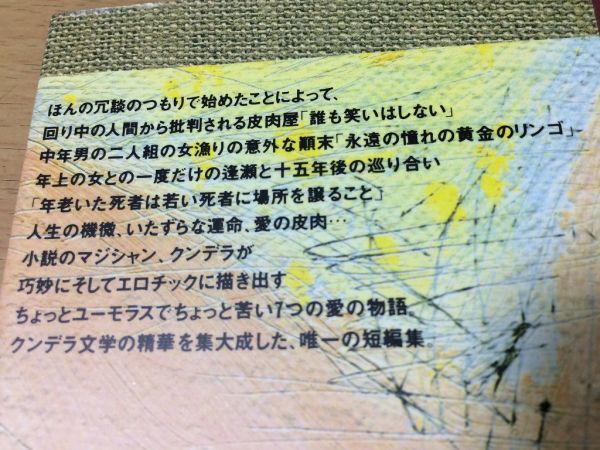 ほんの冗談のつもりで始めたことによって、
回り中の人間から批判される皮肉屋「誰も笑いはしない」
中年男の二人組の女漁りの意外な顚末「永遠の憧れの黄金のリンゴ」
年上の女との一度だけの逢瀬と十五年後の巡り合い
「年老いた死者は若い死者に場所を譲ること」
人生の機微、いたずらな運命、愛の皮肉…
小説のマジシャン、クンデラが
巧妙にそしてエロチックに描き出す
ちょっとユーモラスでちょっと苦い7つの愛の物語。
クンデラ文学の精華を集大成した、唯一の短編集。